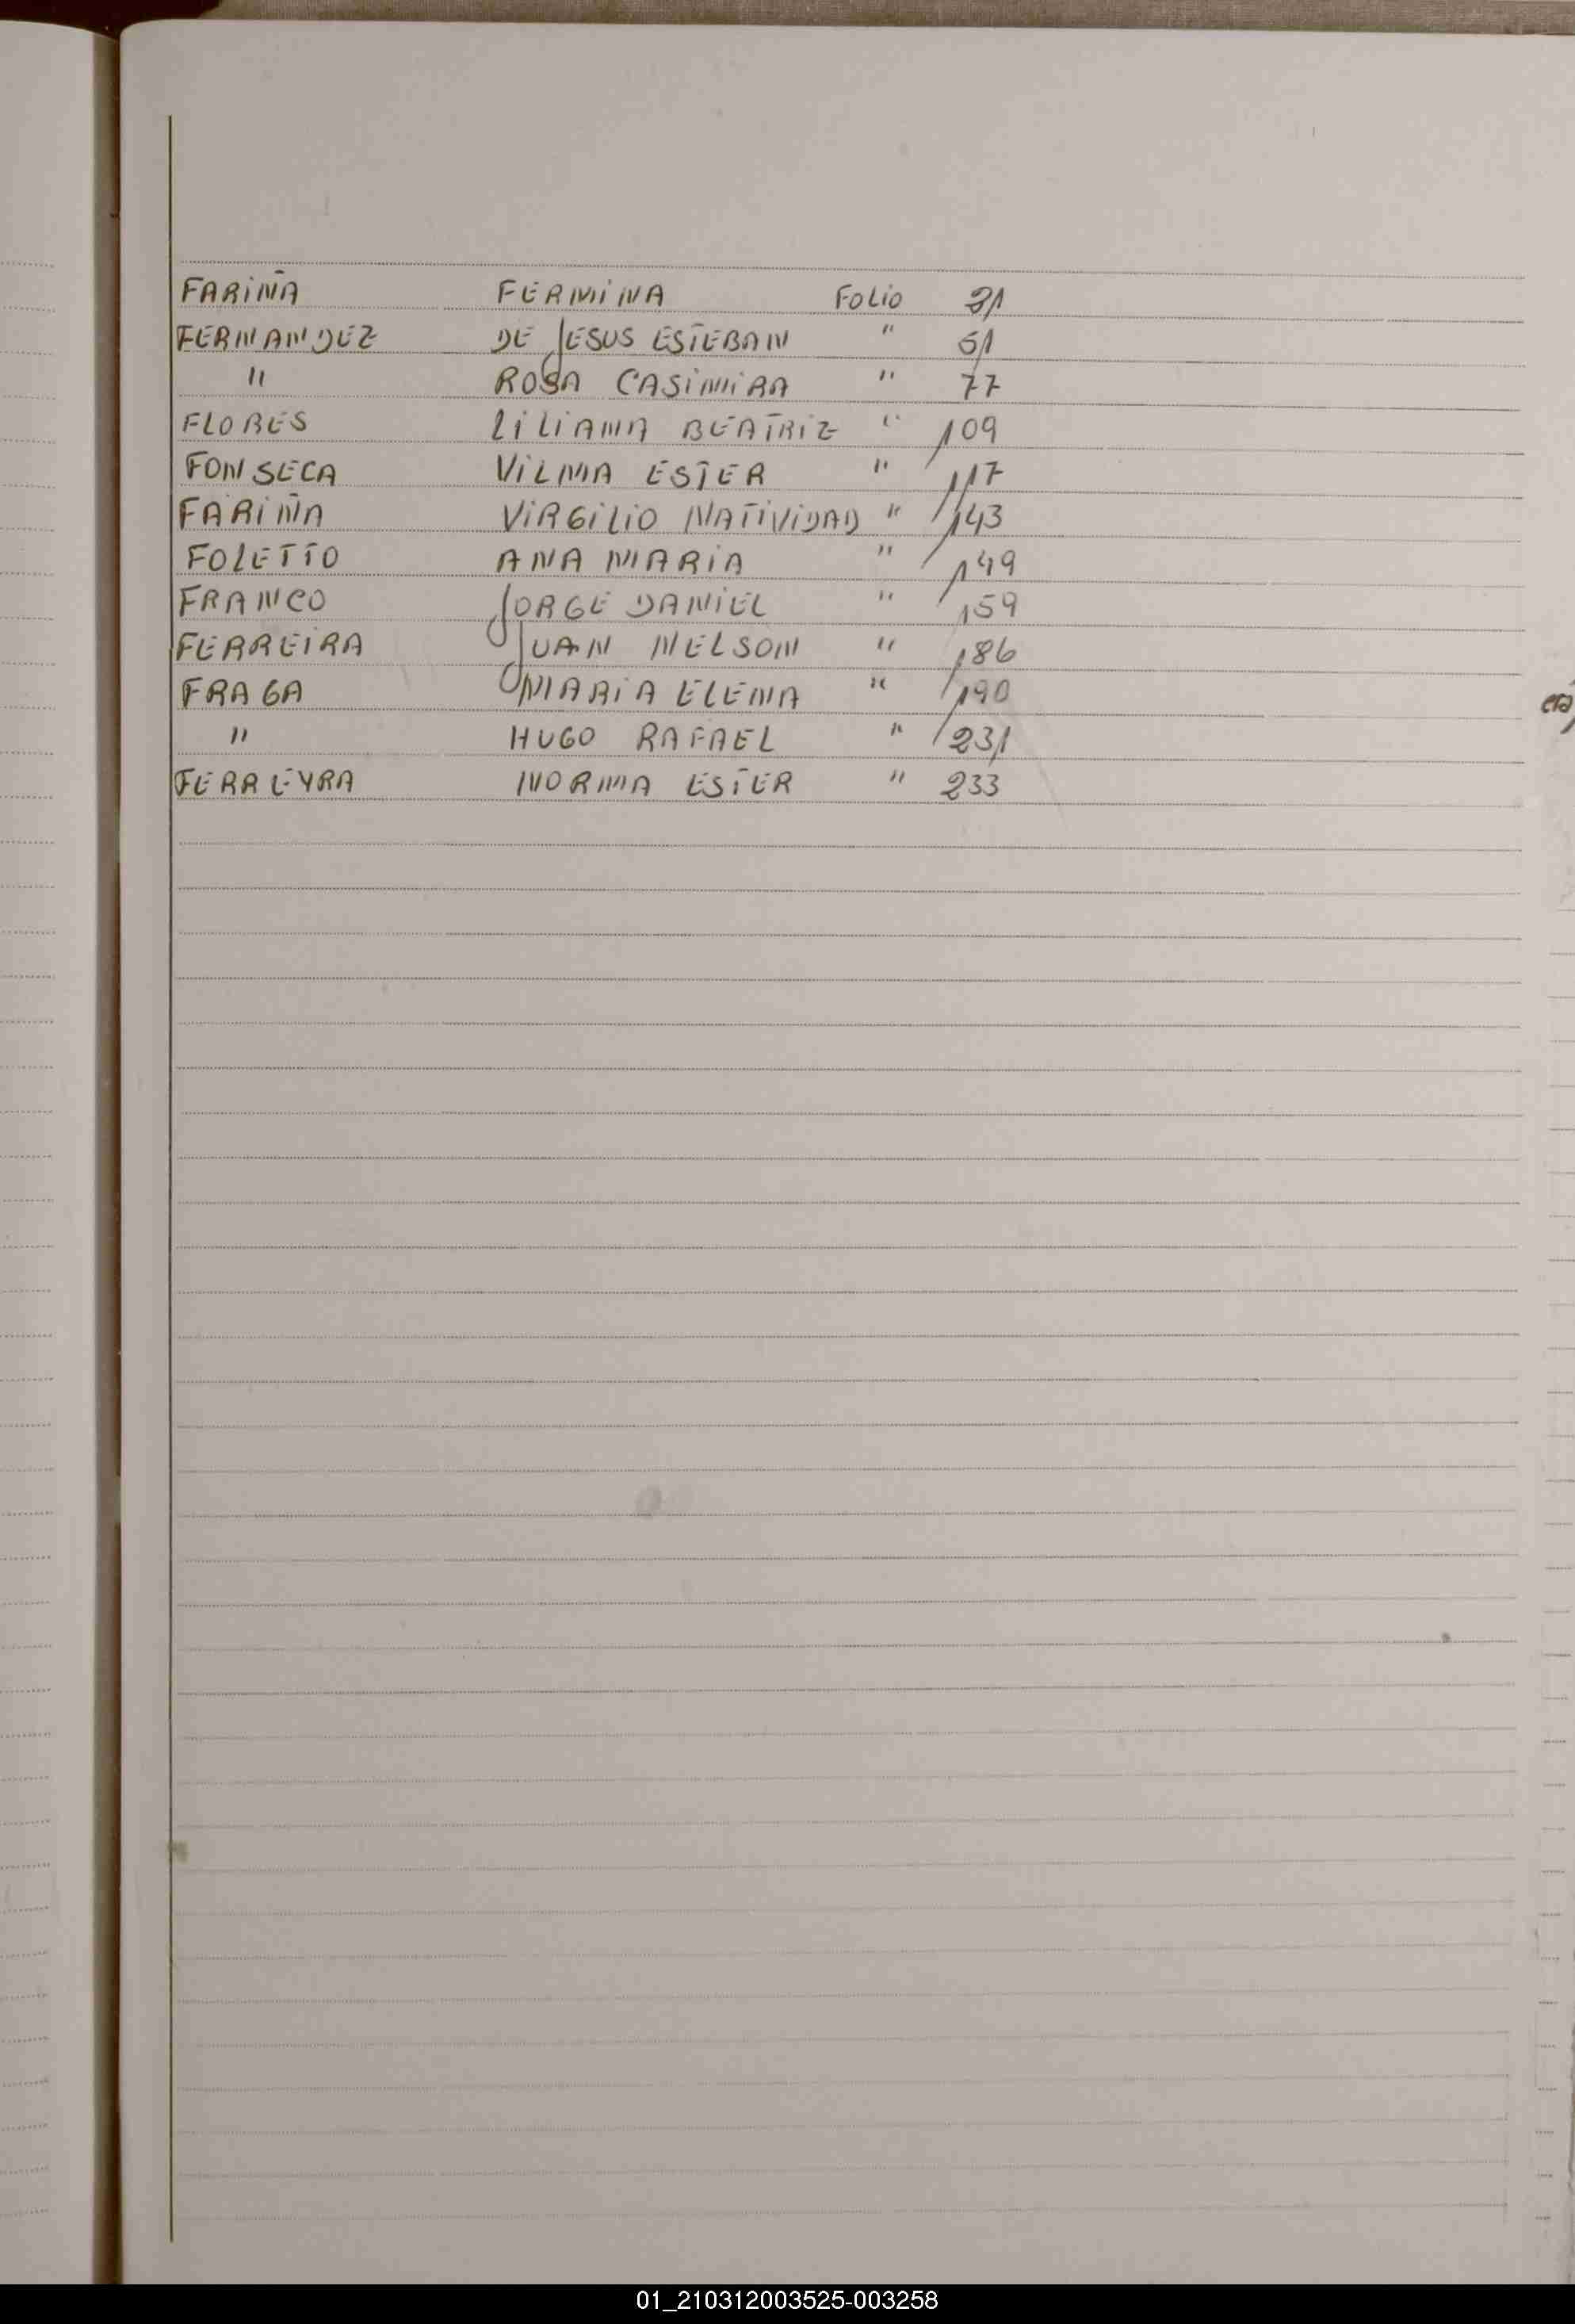 FARIÑA FERMINA Folio 31
FERNANDEZ DE JESUS ESTEBAN " 61
" ROSA CASIMIRA " 77
FLORES LILIANA BEATRIZ " 109
FONSECA VILMA ESTER " 117
FARIÑA VIRGILIO NATIVIDAD " 143
FOLETTO ANA MARIA " 149
FRANCO JORGE DANIEL " 159
FERREIRA JUAN NELSON " 186
FRAGA MARIA ELENA " 190
" HUGO RAFAEL " 231
FERREYRA NORMA ESTER " 233
01_210312003525-003258